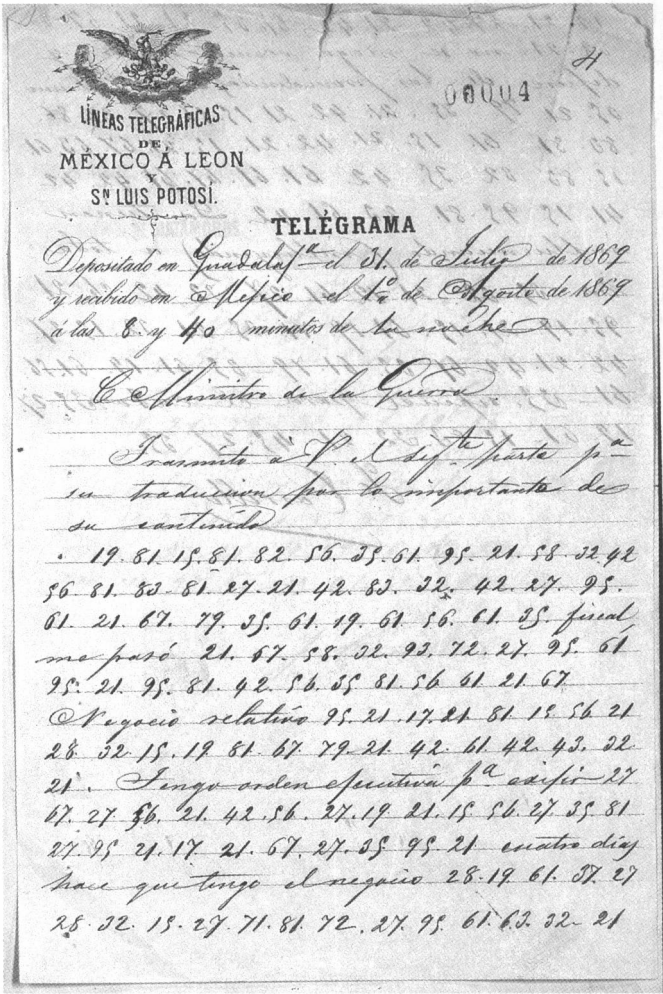 4
00004
LÍNEAS TELEGRÁFICAS
DE
MÉXICO Á LEON
Y
Sⁿ LUIS POTOSÍ.
TELÉGRAMA
Depositado en Guadalajª el 31. de Julio de 1869
y recibido en Mejico el 1º de Agosto de 1869
á las 8 y 40 minutos de la noche
C Ministro de la Guerra.
Trasmito á V. el sigte parte pª
su traduccion por lo importante de
su contenido
19. 81. 15. 81. 82. 56. 35. 61. 95. 21. 58. 32. 42
56. 81. 83. 81. 27. 21. 42. 83. 32. 42. 27. 95.
61. 21. 67. 79. 35. 61. 19. 61. 56. 61. 35. fiscal
me pasó 21. 67. 58. 32. 93. 72. 27. 95. 61
95. 21. 95. 81. 42. 56. 35. 81. 56 61 21 67
Negocio relativo 95. 21. 17. 21 81. 15 56 21
28 32. 15. 19 81. 67. 79. 21. 42. 61. 42. 43. 32
21. Tengo orden ejecutiva pª exijir 27
67. 27 56. 21. 42. 56. 27. 19 21. 15 56. 27. 35 81
27. 95 21. 17. 21. 67. 27. 35. 95. 21 cuatro dias
hace que tengo el negocio 28. 19. 61. 37. 27
28. 32. 15. 27. 71. 81. 72. 27. 95. 61. 63. 32- 21